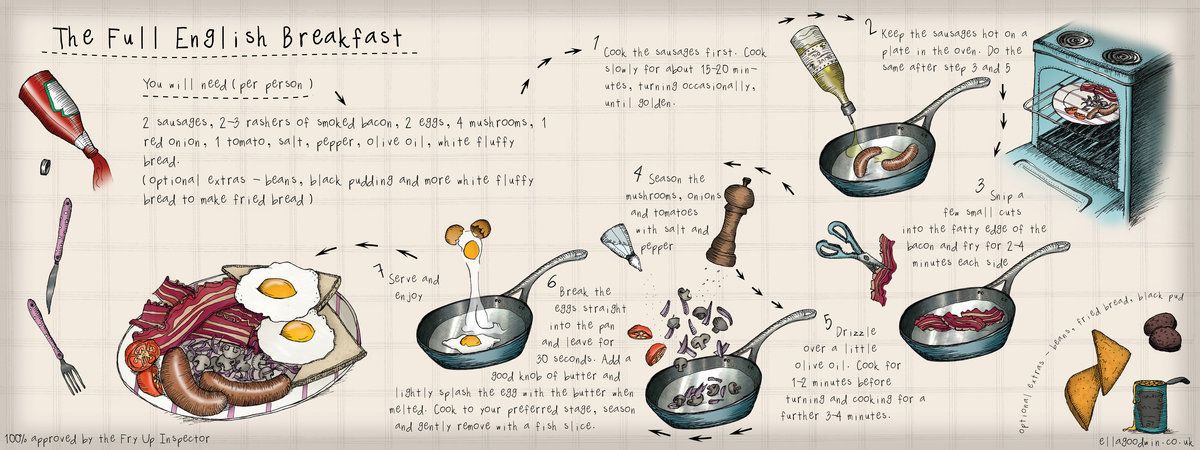 The Full English Breakfast
You will need (per person)
2 sausages, 2-3 rashers of smoked bacon, 2 eggs, 4 mushrooms, 1
red onion, 1 tomato, salt, pepper, olive oil, white fluffy
bread.
(optional extras - beans, black pudding and more white fluffy
bread to make fried bread)
1
Cook the sausages first. Cook
slowly for about 15-20 min-
utes, turning occasionally,
until golden.
2
Keep the sausages hot on a
plate in the oven. Do the
same after step 3 and 5
3 Snip a
few small cuts
into the fatty edge of the
bacon and fry for 2-4
minutes each side
4 Season the
mushrooms, onions
and tomatoes
with salt and
pepper
5 Drizzle
over a little
olive oil. Cook for
1-2 minutes before
turning and cooking for a
further 3-4 minutes.
6 Break the
eggs straight
into the pan
and leave for
30 seconds. Add a
good knob of butter and
lightly splash the egg with the butter when
melted. Cook to your preferred stage, season
and gently remove with a fish slice.
7 Serve and
enjoy
optional extras - beans, fried bread, black pud
100% approved by the Fry Up Inspector
ellagoodwin.co.uk